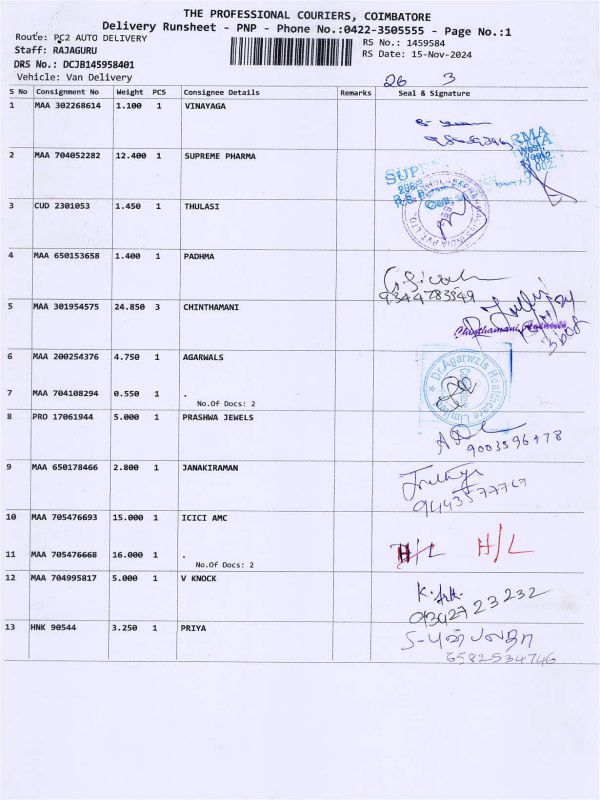 THE PROFESSIONAL COURIERS, COIMBATORE
Delivery Runsheet - PNP - Phone No.:0422-3505555 - Page No.:1
Route: PC2 AUTO DELIVERY
RS No.: 1459584
Staff: RAJAGURU
RS Date: 15-Nov-2024
DRS No.: DCJB145958401
Vehicle: Van Delivery
26 3
S No Consignment No Weight PCS Consignee Details Remarks Seal & Signature
1 MAA 302268614 1.100 1 VINAYAGA
2 MAA 704052282 12.400 1 SUPREME PHARMA
3 CUD 2301053 1.450 1 THULASI
4 MAA 650153658 1.400 1 PADHMA
9344783549
5 MAA 301954575 24.850 3 CHINTHAMANI
Chinthamani
6 MAA 200254376 4.750 1 AGARWALS
Dr Agarwals Healthcare Limited
7 MAA 704108294 0.550 1 .
No.Of Docs: 2
8 PRO 17061944 5.000 1 PRASHWA JEWELS
9003596478
9 MAA 650178466 2.800 1 JANAKIRAMAN
9443577767
10 MAA 705476693 15.000 1 ICICI AMC
H/L H/L
11 MAA 705476668 16.000 1 .
No.Of Docs: 2
12 MAA 704995817 5.000 1 V KNOCK
13 HNK 90544 3.250 1 PRIYA
6582534746